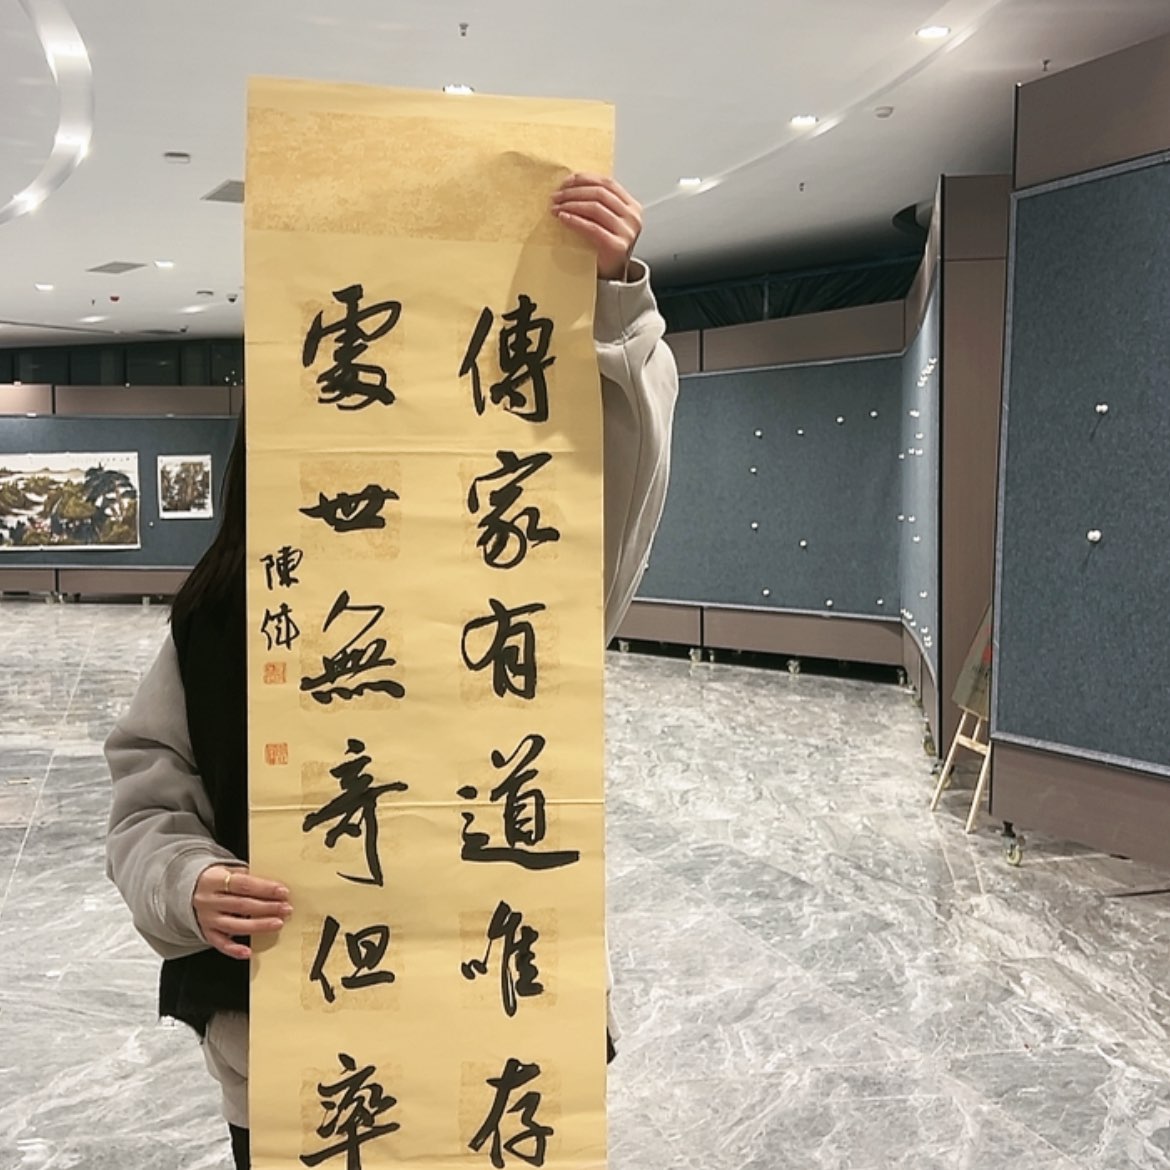 傳家有道唯存
處世無奇但率
陳偉